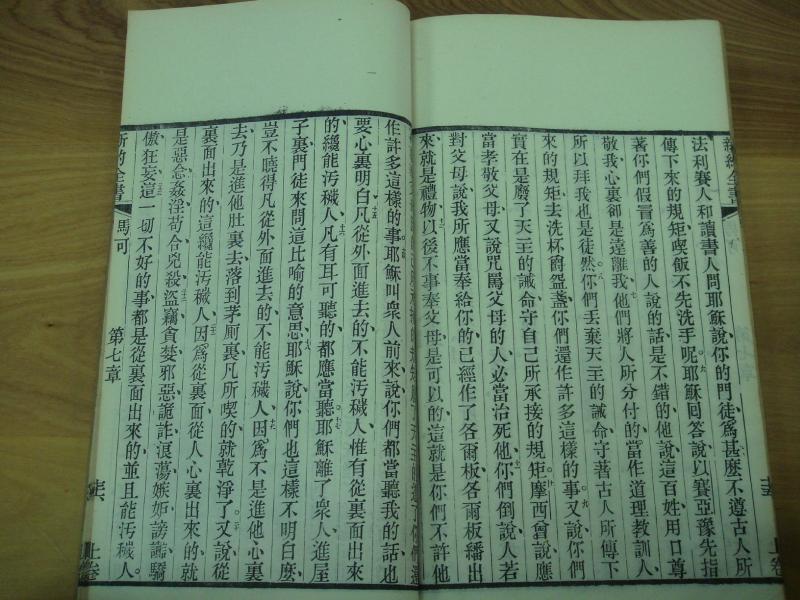 法利賽人和讀書人問耶穌說、你的門徒爲甚麼不遵古人所
傳下來的規矩、喫飯不先洗手呢。耶穌回答說、以賽亞豫先指
著你們假冒爲善的人說的話是不錯的、他說、這百姓用口尊
敬我、心裏卻是遠離我、他們將人所分付的、當作道理教訓人、
所以拜我也是徒然、你們丟棄天主的誡命、守著古人所傳下
來的規矩、去洗杯爵盤盞、你們還作許多這樣的事。又說、你們
實在是廢了天主的誡命、守自己所承接的規矩、摩西曾說、應
當孝敬父母、又說、咒罵父母的人、必當治死他、你們倒說、人若
對父母說、我所應當奉給你的、已經作了各爾板、各爾板繙出
來、就是禮物、以後不事奉父母、是可以的、這就是你們不許他
作許多這樣的事、耶穌叫衆人前來、說、你們都當聽我的話、也
要心裏明白、凡從外面進去的、不能汚穢人、惟有從裏面出來
的、纔能汚穢人、凡有耳可聽的、都應當聽。耶穌離了衆人、進屋
子裏、門徒來問這比喻的意思、耶穌說、你們也這樣不明白麼、
豈不曉得凡從外面進去的、不能汚穢人、因爲不是進他心裏
去、乃是進他肚裏去、落到茅厠裏、凡所喫的就乾淨了。又說、從
裏面出來的、這纔能汚穢人、因爲從裏面、從人心裏出來的、就
是惡念、姦淫、苟合、兇殺、盜竊、貪婪、邪惡、詭詐、淫蕩、嫉妬、謗讟、驕
傲、狂妄、這一切不好的事、都是從裏面出來的、並且能汚穢人。
新約全書 馬可 第七章 上卷